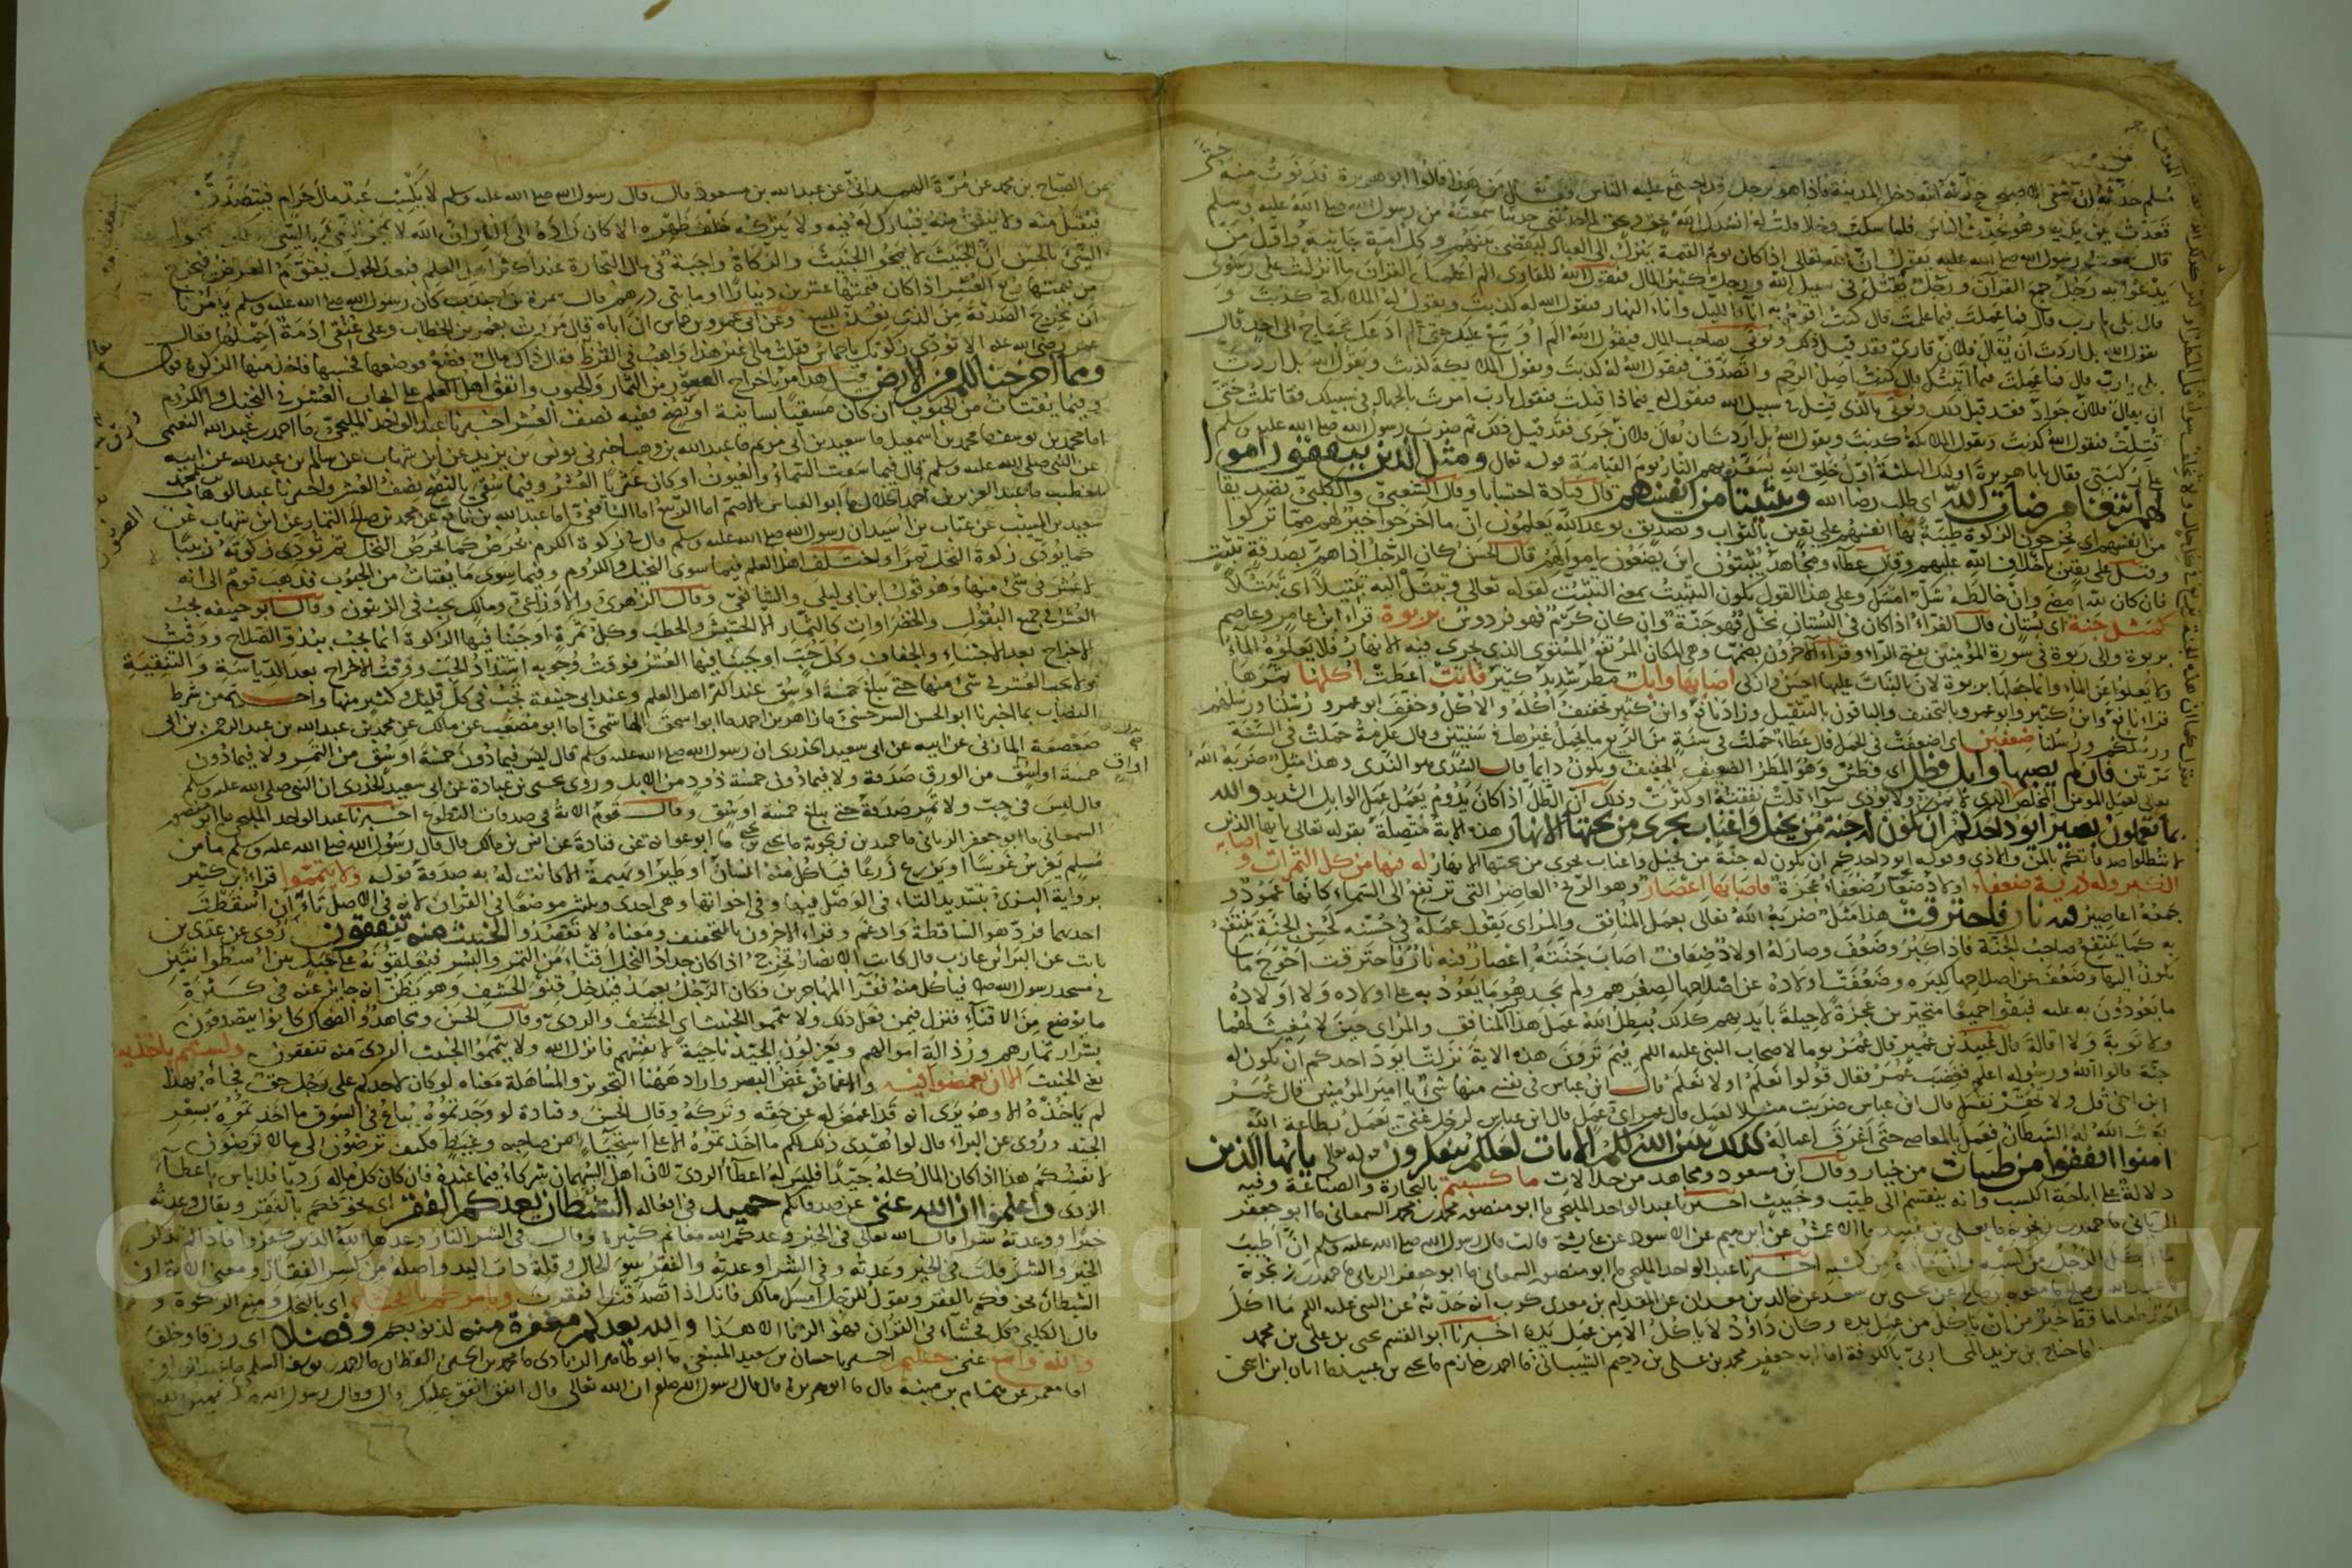 مسلم حدثه ان شفى الاصبحى حدثه انه دخل المدينة فاذا هو برجل قد اجتمع عليه الناس فقال من هذا قالوا ابو هريرة فدنوت منه حتى
قعدت بين يديه وهو يحدث الناس فلما سكت وخلا قلت له انشدك الله بحق وبحق لما حدثتنى حديثا سمعته من رسول الله صلى الله عليه وسلم
قال سمعت رسول الله صلى الله عليه يقول ان الله تعالى اذا كان يوم القيمة ينزل الى العباد ليقضى بينهم وكل امة جاثية واول من
يدعوا به رجل جمع القرآن ورجل يقتل فى سبيل الله ورجل كثير المال فيقول الله للقارى الم اعلمك القرآن ما انزلت على رسولى
قال بلى يا رب قال فما عملت فيما علمت قال كنت اقوم به آناء الليل واناء النهار فيقول الله له كذبت ويقول له الملائكة كذبت و
يقول الله بل اردت ان يقال فلان قارئ فقد قيل ذلك ويؤتى بصاحب المال فيقول الله الم اوسع عليك حتى لم ادعك تحتاج الى احد قال
بلى يا رب قال فما عملت فيما آتيتك قال كنت اصل الرحم واتصدق فيقول الله له كذبت ويقول الملائكة كذبت ويقول الله بل اردت
ان يقال فلان جواد فقد قيل ذلك ويؤتى بالذى قتل فى سبيل الله فيقول له فيما ذا قتلت فيقول يا رب امرت بالجهاد فى سبيلك فقاتلت حتى
قتلت فيقول الله كذبت ويقول الملائكة كذبت ويقول الله بل اردت ان يقال فلان جرى فقد قيل ذلك ثم ضرب رسول الله صلى الله عليه وسلم
على ركبتى فقال يا با هريرة اولئك الثلثة اول خلق الله تسعر بهم النار يوم القيامة قوله تعالى ومثل الذين ينفقون اموا
لهم ابتغاء مرضات الله اى طلب رضا الله وتثبيتا من انفسهم قال قتادة احتسابا وقال الشعبى والكلبى تصديقا
من انفسهم اى يخرجون الزكوة طيبة بها انفسهم على يقين بالثواب وتصديق بوعد الله يعلمون ان ما اخرجوا خير لهم مما تركوا
وقيل على يقين باخلاف الله عليهم وقال عطاء ومجاهد يثبتون اين يضعون اموالهم قال الحسن كان الرجل اذا هم بصدقة تثبت
فان كان لله امضى وان خالطه شك امسك وعلى هذا القول يكون التثبيت بمعنى التثبت كقوله تعالى وتبتل اليه تبتيلا اى تبتلا
كمثل جنة اى بستان قال الفراء اذا كان فى البستان نخل فهو جنة وان كان كرم فهو فردوس بربوة قرأ ابن عامر وعاصم
بربوة والى ربوة فى سورة المؤمنين بفتح الراء وقرأ الآخرون بضمها وهى المكان المرتفع المستوى الذى يجرى فيه الانهار فلا يعلوه الماء
ولا يعلوا عن الماء وانما جعلها بربوة لان النبات عليها احسن وازكى اصابها وابل مطر شديد كثير فآتت اعطت اكلها ثمرها
قرأ نافع وابن كثير وابو عمرو بالتخفيف والباقون بالتثقيل وزاد نافع وابن كثير تخفيف اكله والاكل وخفف ابو عمرو رسلنا ورسلهم
ورسلكم ورسلنا ضعفين اى اضعفت فى الحمل قال عطاء حملت فى سنة من الريع ما يحمل غيرها فى سنتين وقال عكرمة حملت فى السنة
مرتين فان لم يصبها وابل فطل اى فطش وهو المطر الضعيف الخفيف ويكون دايما قال السدى هو الندى وهذا مثل ضربه الله
تعالى لعمل المؤمن المخلص الذى لا يمن ولا يؤذى سواء قلت نفقته او كثرت وذلك ان الطل اذا كان يدوم يعمل عمل الوابل الشديد والله
بما تعملون بصير ايود احدكم ان تكون له جنة من نخيل واعناب تجرى من تحتها الانهار هذه الاية متصلة بقوله تعالى يا يها الذين
لا تبطلوا صدقاتكم بالمن والاذى وقوله ايود احدكم ان تكون له جنة من نخيل واعناب تجرى من تحتها الانهار له فيها من كل الثمرات واصابه
الكبر وله ذرية ضعفاء اولاد صغار ضعفاء عجزة فاصابها اعصار وهو الريح العاصف التى ترتفع الى السماء كانها عمود و
جمعه اعاصير فيه نار فاحترقت هذا مثل ضربه الله تعالى بعمل المنافق والمرائى يقول عمله فى حسنه كحسن الجنة ينتفع
به كما ينتفع صاحب الجنة فاذا كبر وضعف وصار له اولاد ضعاف اصاب جنته اعصار فيه نار فاحترقت احوج ما
يكون اليها وضعف عن اصلاحها لكبره وضعفت اولاده عن اصلاحها لصغرهم ولم يجد هو ما يعود به على اولاده ولا اولاده
ما يعودون به عليه فبقوا جميعا متحيرين عجزة لا حيلة بايديهم كذلك يبطل الله عمل هذا المنافق والمرائى حين لا مغيث لهما
ولا توبة ولا اقالة قال عبيد بن عمير قال عمر يوما لاصحاب النبى عليه السلم فيم ترون هذه الاية نزلت ايود احدكم ان تكون له
جنة قالوا الله ورسوله اعلم فغضب عمر فقال قولوا نعلم او لا نعلم قال ابن عباس فى نفسى منها شئ يا امير المؤمنين قال عمر
ابن اخى قل ولا تحقر نفسك قال ابن عباس ضربت مثلا لعمل قال عمر اى عمل قال ابن عباس لرجل غنى يعمل بطاعة الله
بعث الله له الشيطان فعمل بالمعاصى حتى اغرق اعماله كذلك يبين الله لكم الايات لعلكم تتفكرون قوله تعالى يا يها الذين
امنوا انفقوا من طيبات من خيار وقال ابن مسعود ومجاهد من حلالات ما كسبتم بالتجارة والصناعة وفيه
دلالة على اباحة الكسب وانه ينقسم الى طيب وخبيث اخبرنا عبد الواحد المليحى ما ابو منصور محمد بن محمد السمعانى ما ابو جعفر
الريانى ما حميد بن زنجوية ما يعلى بن عبيد ما الاعمش عن ابرهيم عن الاسود عن عايشة قالت قال رسول الله صلى الله عليه وسلم ان اطيب
ما اكل الرجل من كسبه وان ولده من كسبه اخبرنا عبد الواحد المليحى ما ابو منصور السمعانى ما ابو جعفر الريانى ما حميد بن زنجوية
عن خالد بن معدان عن المقدام بن معدى كرب انه حدثه عن النبى عليه السلم ما اكل
احد طعاما قط خير من ان ياكل من عمل يده وكان داود لا ياكل الا من عمل يده اخبرنا ابو القسم يحيى بن على بن محمد
محمد بن على بن دحيم الشيبانى ما احمد بن حازم ما يحيى بن عبيد ما ابان ابن اسحق
عن الصباح بن محمد عن مرة الهمدانى عن عبد الله بن مسعود قال قال رسول الله صلى الله عليه وسلم لا يكسب عبد مال حرام فيتصدق
فيقبل منه ولا ينفق منه فيبارك له فيه ولا يتركه خلف ظهره الا كان زاده الى النار ان الله لا يمحو السئ بالسئ ولكن يمحوا
السئ بالحسن ان الخبيث لا يمحو الخبيث والزكاة واجبة فى مال التجارة عند اكثر اهل العلم فبعد الحول يقوم العروض فيخرج
من قيمتها ربع العشر اذا كان قيمتها عشرين دينارا او مايتى درهم قال سمرة بن جندب كان رسول الله صلى الله عليه وسلم يامرنا
ان نخرج الصدقة من الذى نعد للبيع وعن ابى عمرو بن حماس ان اباه قال مررت بعمر بن الخطاب وعلى عنقى ادمة احملها فقال
عمر رضى الله عنه الا تؤدى زكوتك يا حماس فقلت مالى غير هذا واهب فى القرظ فقال ذاك مال فضع فوضعها فحسبها فاخذ منها الزكوة قوله
ومما اخرجنا لكم من الارض قيل هذا امر باخراج العشور من الثمار والحبوب واتفق اهل العلم على ايجاب العشر فى النخيل والكروم
وفيما يقتات من الحبوب ان كان مسقيا بساينة او نضح ففيه نصف العشر اخبرنا عبد الواحد المليحى ما احمد بن عبد الله النعيمى
اما محمد بن يوسف ما محمد بن اسمعيل ما سعيد بن ابى مريم ما عبد الله بن وهب اخبرنى يونس بن يزيد عن ابن شهاب عن سالم بن عبد الله عن ابيه
عن النبى صلى الله عليه وسلم قال فيما سقت السماء والعيون او كان عثريا العشر وفيما سقى بالنضح نصف العشر واخبرنا عبد الوهاب بن محمد
الخطيب ما عبد العزيز بن احمد الخلال ما ابو العباس الاصم اما الربيع اما الشافعى اما عبد الله بن نافع عن محمد بن صالح التمار عن ابن شهاب عن
سعيد بن المسيب عن عتاب بن اسيد ان رسول الله صلى الله عليه وسلم قال فى زكوة الكرم يخرص كما يخرص النخل ثم تؤدى زكوته زبيبا
كما يؤدى زكوة النخل تمرا واختلف اهل العلم فيما سوى النخيل والكروم وفيما سوى ما يقتات من الحبوب فذهب قوم الى انه
لا عشر فى شئ منها وهو قول ابن ابى ليلى والشافعى وقال الزهرى والاوزاعى ومالك يجب فى الزيتون وقال ابو حنيفه يجب
العشر فى جميع البقول والخضراوات كالثمار الا الحشيش والحطب وكل ثمرة اوجبنا فيها الزكوة انما يجب ببدو الصلاح ووقت
الاخراج بعد الاجتناء والجفاف وكل حب اوجبنا فيها العشر فوقت وجوبه اشتداد الحب ووقت الاخراج بعد الدياسة والتنقية
ولا يجب العشر فى شئ منها حتى يبلغ خمسة اوسق عند اكثر اهل العلم وعند ابى حنيفة يجب فى كل قليل وكثير منها واحتج من شرط
النصاب بما اخبرنا ابو الحسن السرخسى ما زاهر بن احمد ما ابو اسحق الهاشمى اما ابو مصعب عن مالك عن محمد بن عبد الله بن عبد الرحمن بن ابى
صعصعة المازنى عن ابيه عن ابى سعيد الخدرى ان رسول الله صلى الله عليه وسلم قال ليس فيما دون خمسة اوسق من التمر ولا فيما دون
خمسة اواق من الورق صدقة ولا فيما دون خمسة ذود من الابل وروى يحيى بن عبادة عن ابى سعيد الخدرى ان النبى صلى الله عليه وسلم
قال ليس فى حب ولا تمر صدقة حتى يبلغ خمسة اوسق وقال قوم الاية فى صدقات التطوع اخبرنا عبد الواحد المليحى ما ابو منصور
السمعانى ما ابو جعفر الريانى ما حميد بن زنجوية ما يحيى بن يحيى ما ابو عوانة عن قتادة عن انس بن مالك قال قال رسول الله صلى الله عليه وسلم ما من
مسلم يغرس غرسا او يزرع زرعا فياكل منه انسان او طير او بهيمة الا كانت له به صدقة قوله ولا تيمموا قرأ ابن كثير
برواية البزى بتشديد التاء فى الوصل فيها وفى اخواتها وهى احدى وثلثون موضعا فى القرآن لانه فى الاصل تاءان اسقطت
احديهما فرد هو الساقطة وادغم وقرأ الاخرون بالتخفيف ومعناه لا تقصدوا الخبيث منه تنفقون روى عن عدى بن
ثابت عن البراء بن عازب قال كانت الانصار تخرج اذا كان جداد النخل اقناء من التمر والبسر فيعلقونه على حبل بين اسطوانتين
فى مسجد رسول الله صلى فياكل منه فقراء المهاجرين فكان الرجل يعمد فيدخل قنو الحشف وهو يظن انه جايز عنه فى كثرة
ما يوضع من الاقناء فنزل فيمن فعل ذلك ولا تيمموا الخبيث اى الحشف والردى وقال الحسن ومجاهد والضحاك كانوا يتصدقون
بشرار ثمارهم ورذالة اموالهم ويعزلون الجيد ناحية لانفسهم فانزل الله ولا تيمموا الخبيث الردى منه تنفقون ولستم باخذيه
يعنى الخبيث الا ان تغمضوا فيه والاغماض غض البصر واراد ههنا التجويز والمساهلة معناه لو كان لاحدكم على رجل حق فجاءه بهذا
لم ياخذه الا وهو يرى انه قد اغمض له عن حقه وتركه وقال الحسن وقتادة لو وجدتموه يباع فى السوق ما اخذتموه بسعر
الجيد وروى عن البراء قال لو اهدى ذلك لكم ما اخذتموه الا على استحياء من صاحبه وغيظ فكيف ترضون لى ما لا ترضون
لانفسكم هذا اذا كان المال كله جيدا فليس له اعطاء الردى لان اهل السهمان شركاء فيما عنده فان كان كل ماله رديا فلا باس باعطاء
الردى واعلموا ان الله غنى عن صدقاتكم حميد فى افعاله الشيطان يعدكم الفقر اى يخوفكم بالفقر ويقال وعدته
خيرا ووعدته شرا قال الله تعالى فى الخير وعدكم الله مغانم كثيرة وقال فى الشر النار وعدها الله الذين كفروا فاذا لم يذكر
الخير والشر قلت فى الخير وعدته وفى الشر اوعدته والفقر سوء الحال وقلة ذات اليد واصله من كسر الفقار ومعنى الاية ان
الشيطان يخوفكم بالفقر ويقول للرجل امسك مالك فانك اذا تصدقت افتقرت ويامركم بالفحشاء اى بالبخل ومنع الزكوة و
قال الكلبى كل فحشاء فى القرآن فهو الزنا الا هذا والله يعدكم مغفرة منه لذنوبكم وفضلا اى رزقا وخلفا
والله واسع غنى عليم اخبرنا حسان بن سعيد المنيعى ما ابو طاهر الزيادى ما محمد بن الحسين القطان ما احمد بن يوسف السلمى ما عبد الرزاق
اما معمر عن همام بن منبه قال ما ابو هريرة قال قال رسول الله صلعم ان الله تعالى قال انفق انفق عليك قال وقال رسول الله